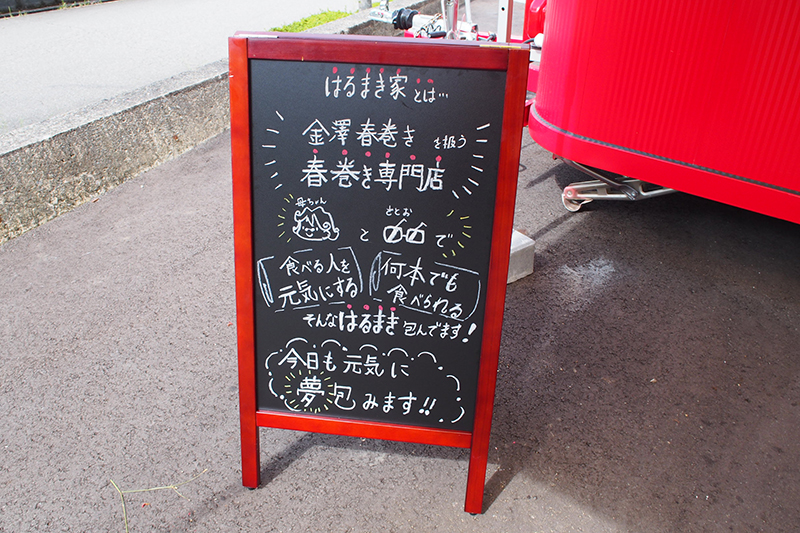 はるまき家とは…
金澤春巻きを扱う
春巻き専門店
母ちゃん さとお
と で
食べる人を 何本でも
元気にする 食べられる
そんなはるまき包んでます!
今日も元気に
夢包みます!!